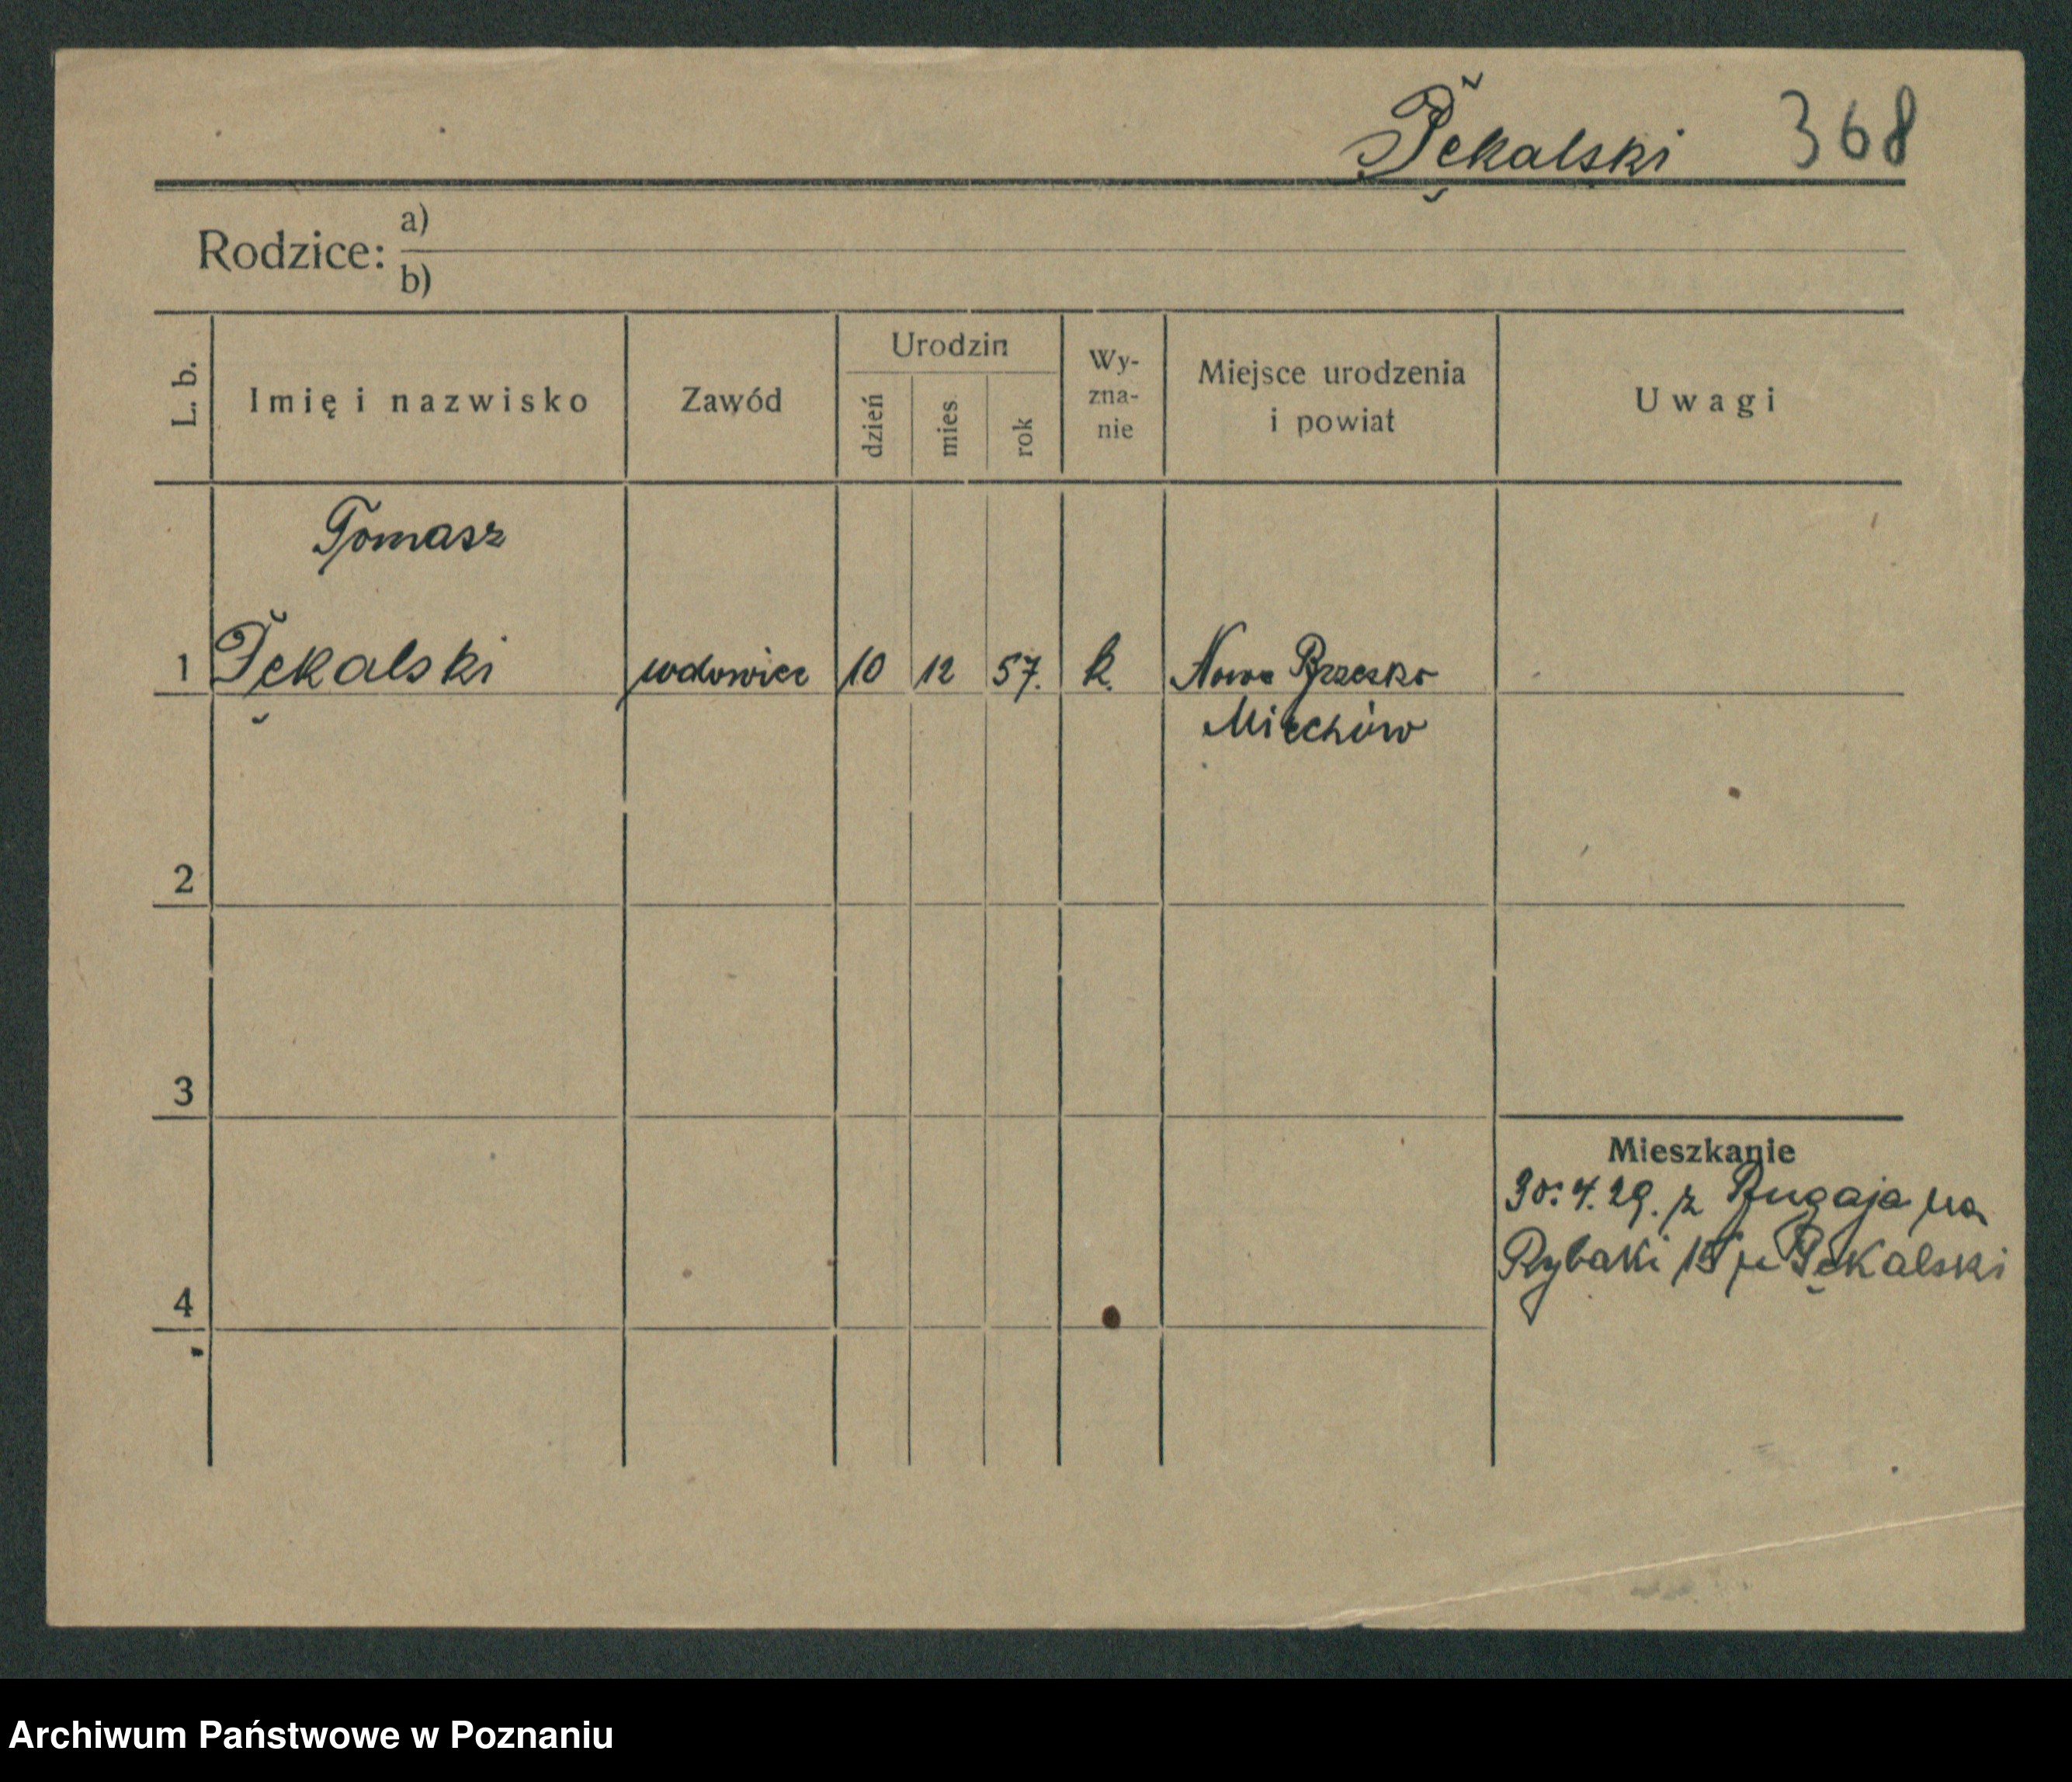 Pękalski 368
Rodzice: a)
b)
L. b. Imię i nazwisko Zawód Urodzin dzień mies. rok Wy-zna-nie Miejsce urodzenia i powiat Uwagi
Tomasz
1 Pękalski wdowiec 10 12 57. k. Nowe Brzesko
Miechów
2
3
Mieszkanie
30.4.29. z Bugaja na
Rybaki 15 u Pękalski
4
Archiwum Państwowe w Poznaniu